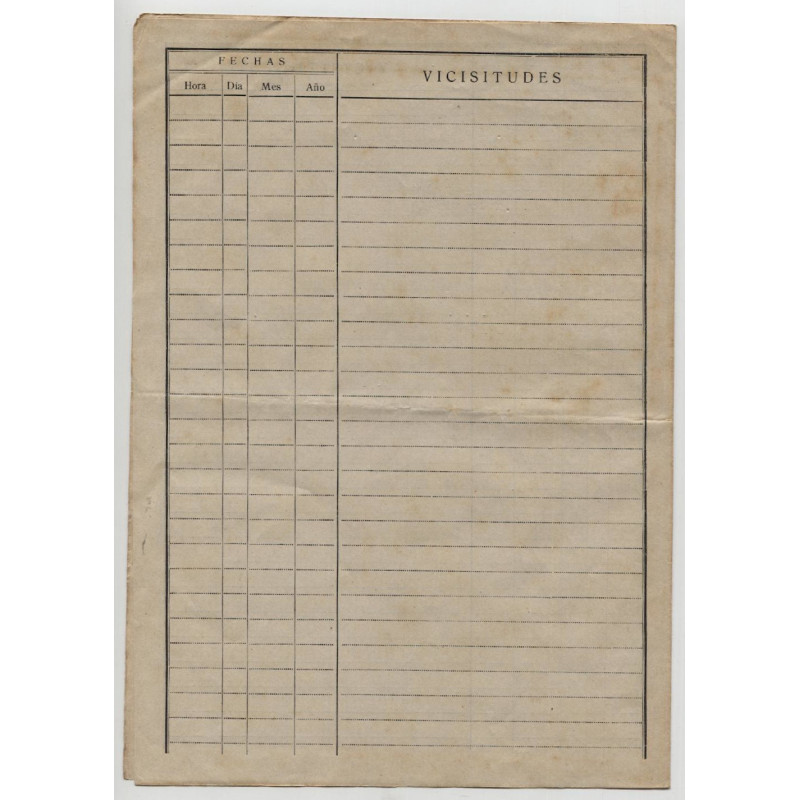 FECHAS
VICISITUDES
Hora Dia Mes Año